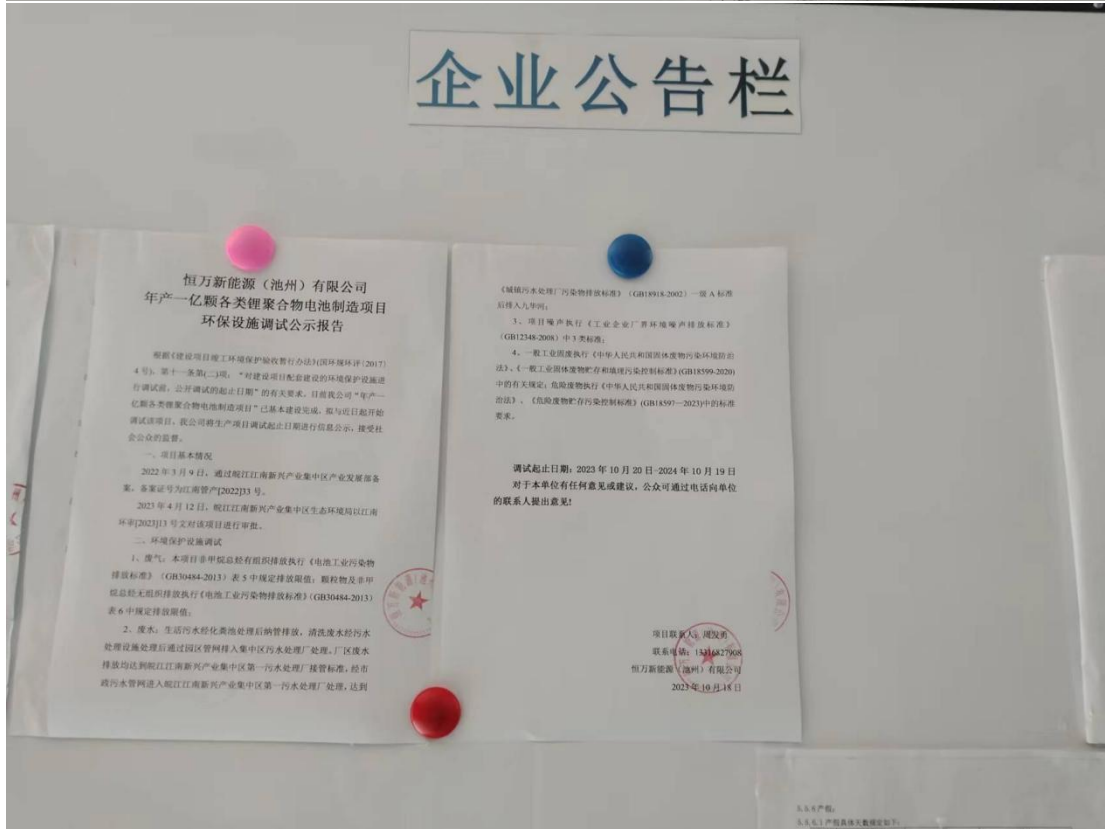 企业公告栏
恒万新能源（池州）有限公司
年产一亿颗各类锂聚合物电池制造项目
环保设施调试公示报告
根据《建设项目竣工环境保护验收暂行办法》(国环规环评[2017]
4号)，第十一条第(二)项，“对建设项目配套建设的环境保护设施进
行调试前，公开调试的起止日期”的有关要求，目前我公司“年产一
亿颗各类锂聚合物电池制造项目”已基本建设完成，拟与近日起开始
调试该项目，我公司将生产项目调试起止日期进行信息公示，接受社
会公众的监督。
一、项目基本情况
2022年3月9日，通过皖江江南新兴产业集中区产业发展部备
案，备案证号为江南管产[2022]33号。
2023年4月12日，皖江江南新兴产业集中区生态环境局以江南
环审[2023]13号文对该项目进行审批。
二、环境保护设施调试
1、废气：本项目非甲烷总烃有组织排放执行《电池工业污染物
排放标准》（GB30484-2013）表5中规定排放限值；颗粒物及非甲
烷总烃无组织排放执行《电池工业污染物排放标准》（GB30484-2013）
表6中规定排放限值；
2、废水：生活污水经化粪池处理后纳管排放，清洗废水经污水
处理设施处理后通过园区管网排入集中区污水处理厂处理。厂区废水
排放均达到皖江江南新兴产业集中区第一污水处理厂接管标准，经市
政污水管网进入皖江江南新兴产业集中区第一污水处理厂处理，达到
《城镇污水处理厂污染物排放标准》（GB18918-2002）一级A标准
后排入九华河；
3、项目噪声执行《工业企业厂界环境噪声排放标准》
（GB12348-2008）中3类标准；
4、一般工业固废执行《中华人民共和国固体废物污染环境防治
法》、《一般工业固体废物贮存和填埋污染控制标准》(GB18599-2020)
中的有关规定；危险废物执行《中华人民共和国固体废物污染环境防
治法》、《危险废物贮存污染控制标准》(GB18597—2023)中的标准
要求。
调试起止日期：2023年10月20日-2024年10月19日
对于本单位有任何意见或建议，公众可通过电话向单位
的联系人提出意见！
项目联系人：周发勇
联系电话：13316827908
恒万新能源（池州）有限公司
2023年10月18日
5.5.6产假：
5.5.6.1产假具体天数规定如下：